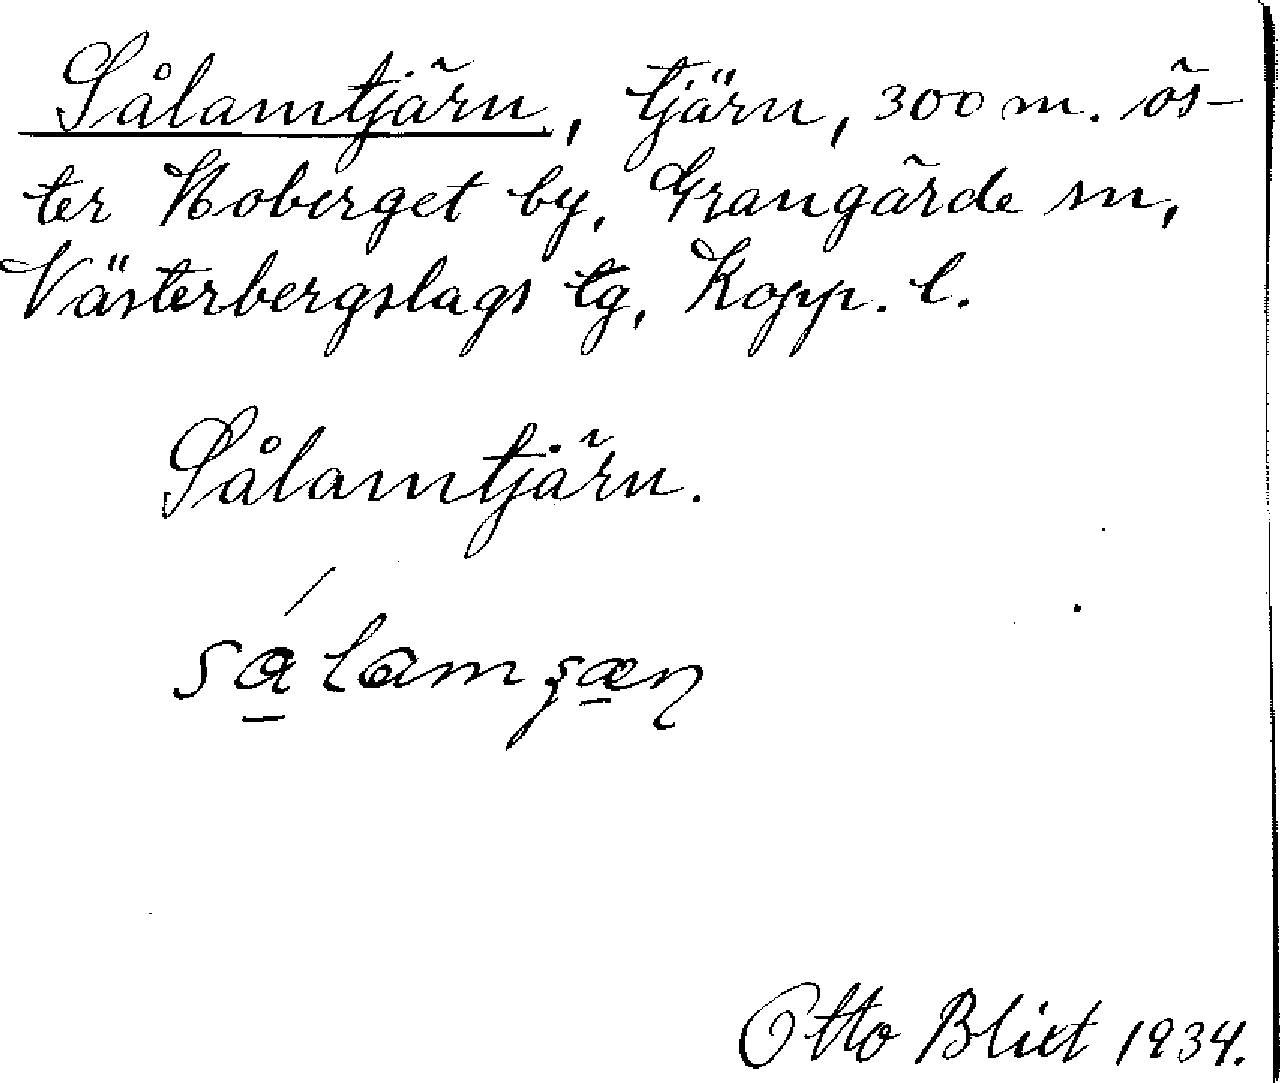 Sålamtjärn, tjärn, 300 m. ös-
ter Hoberget by, Grangärde sn,
Västerbergslags tg, Kopp. l.
Sålamtjärn.
Otto Blixt 1934.